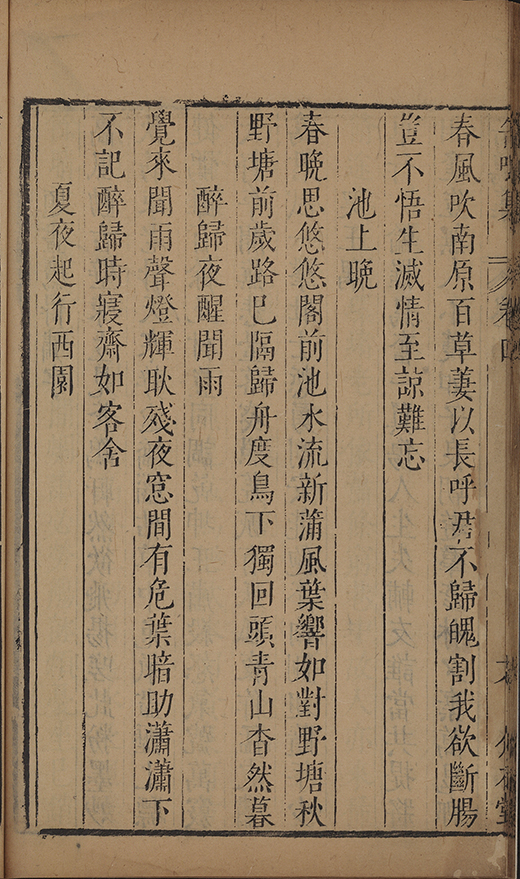 卷四
春風吹南原百草萋以長呼君不歸魄割我欲斷腸
豈不悟生滅情至諒難忘
池上晚
春晚思悠悠閣前池水流新蒲風葉響如對野塘秋
野塘前歲路已隔歸舟度鳥下獨回頭青山杳然暮
醉歸夜醒聞雨
覺來聞雨聲燈輝耿殘夜窓間有危葉暗助瀟瀟下
不記醉歸時寢齋如客舍
夏夜起行西園